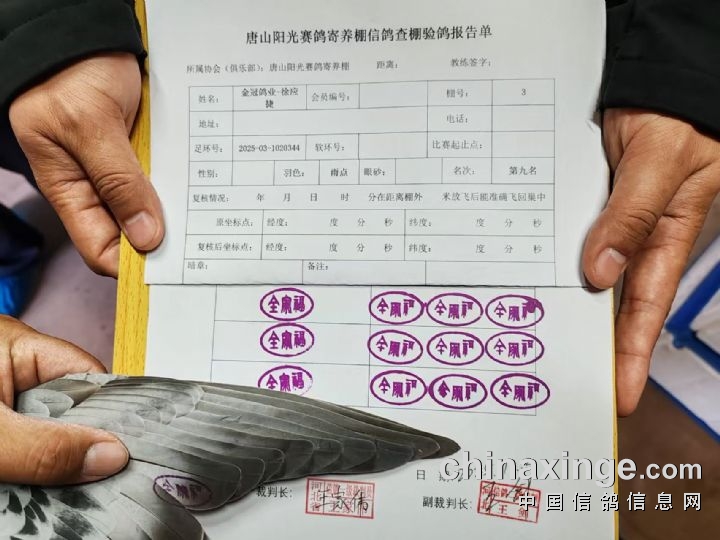 唐山阳光赛鸽寄养棚信鸽查棚验鸽报告单
所属协会（俱乐部）：唐山阳光赛鸽寄养棚 距离： 教练签字：
姓名： 金冠鸽业-徐应捷 会员编号： 棚号： 3
地址： 电话：
足环号： 2025-03-1020344 软环号： 比赛起止点：
性别： 羽色： 雨点 眼砂： 名次： 第九名
复核情况： 年 月 日 时 分在距离棚外 米放飞后能准确飞回巢中
原坐标点： 经度： 度 分 秒 纬度： 度 分 秒
复核后坐标点： 经度： 度 分 秒 纬度： 度 分 秒
暗章： 备注：
全家福
全家福
全家福
日
裁判长： 副裁判长：
chinaxinge.com
中国信鸽信息网